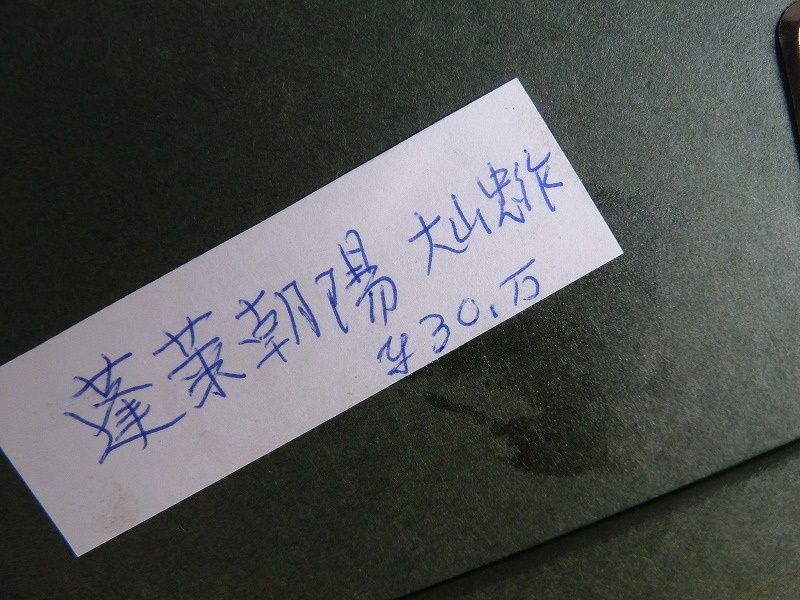 蓬莱朝陽 大山忠作
¥30.万